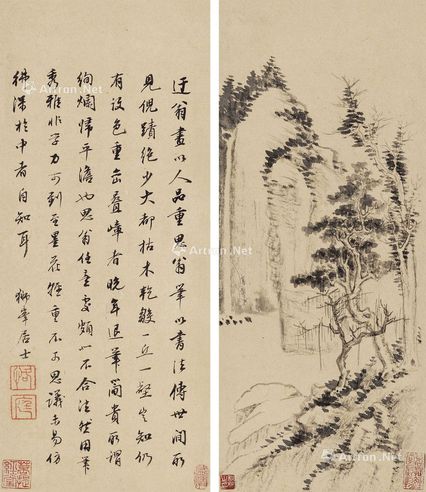 迂翁畫以人品重思翁筆以書法傳世間所
見倪蹟絕少大都枯木乾皴一丘一壑豈知仍
有設色重密疊嶂者晚年退筆簡貴所謂
絢爛歸平澹也思翁任意處頗似不合法然用筆
秀雅非學力可到至墨花雅重不可思議未易仿
彿深於中者自知耳
獅峯居士
Artron.Net
Artron.Net
Artron.Net
Artron.Net